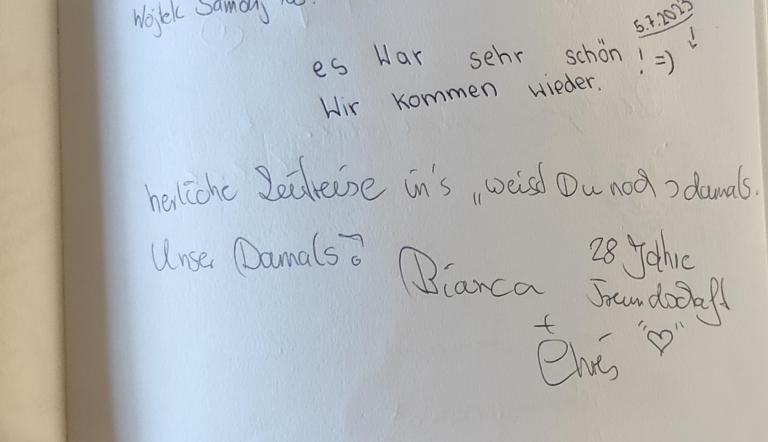 Wojtek
5.7.2023
es war sehr schön ! =) !
Wir kommen wieder.
herliche Zeitreise in's „weisst Du noch damals.
Unser Damals?
Bianca
28 Jahre
Freundschaft
+
"♡"